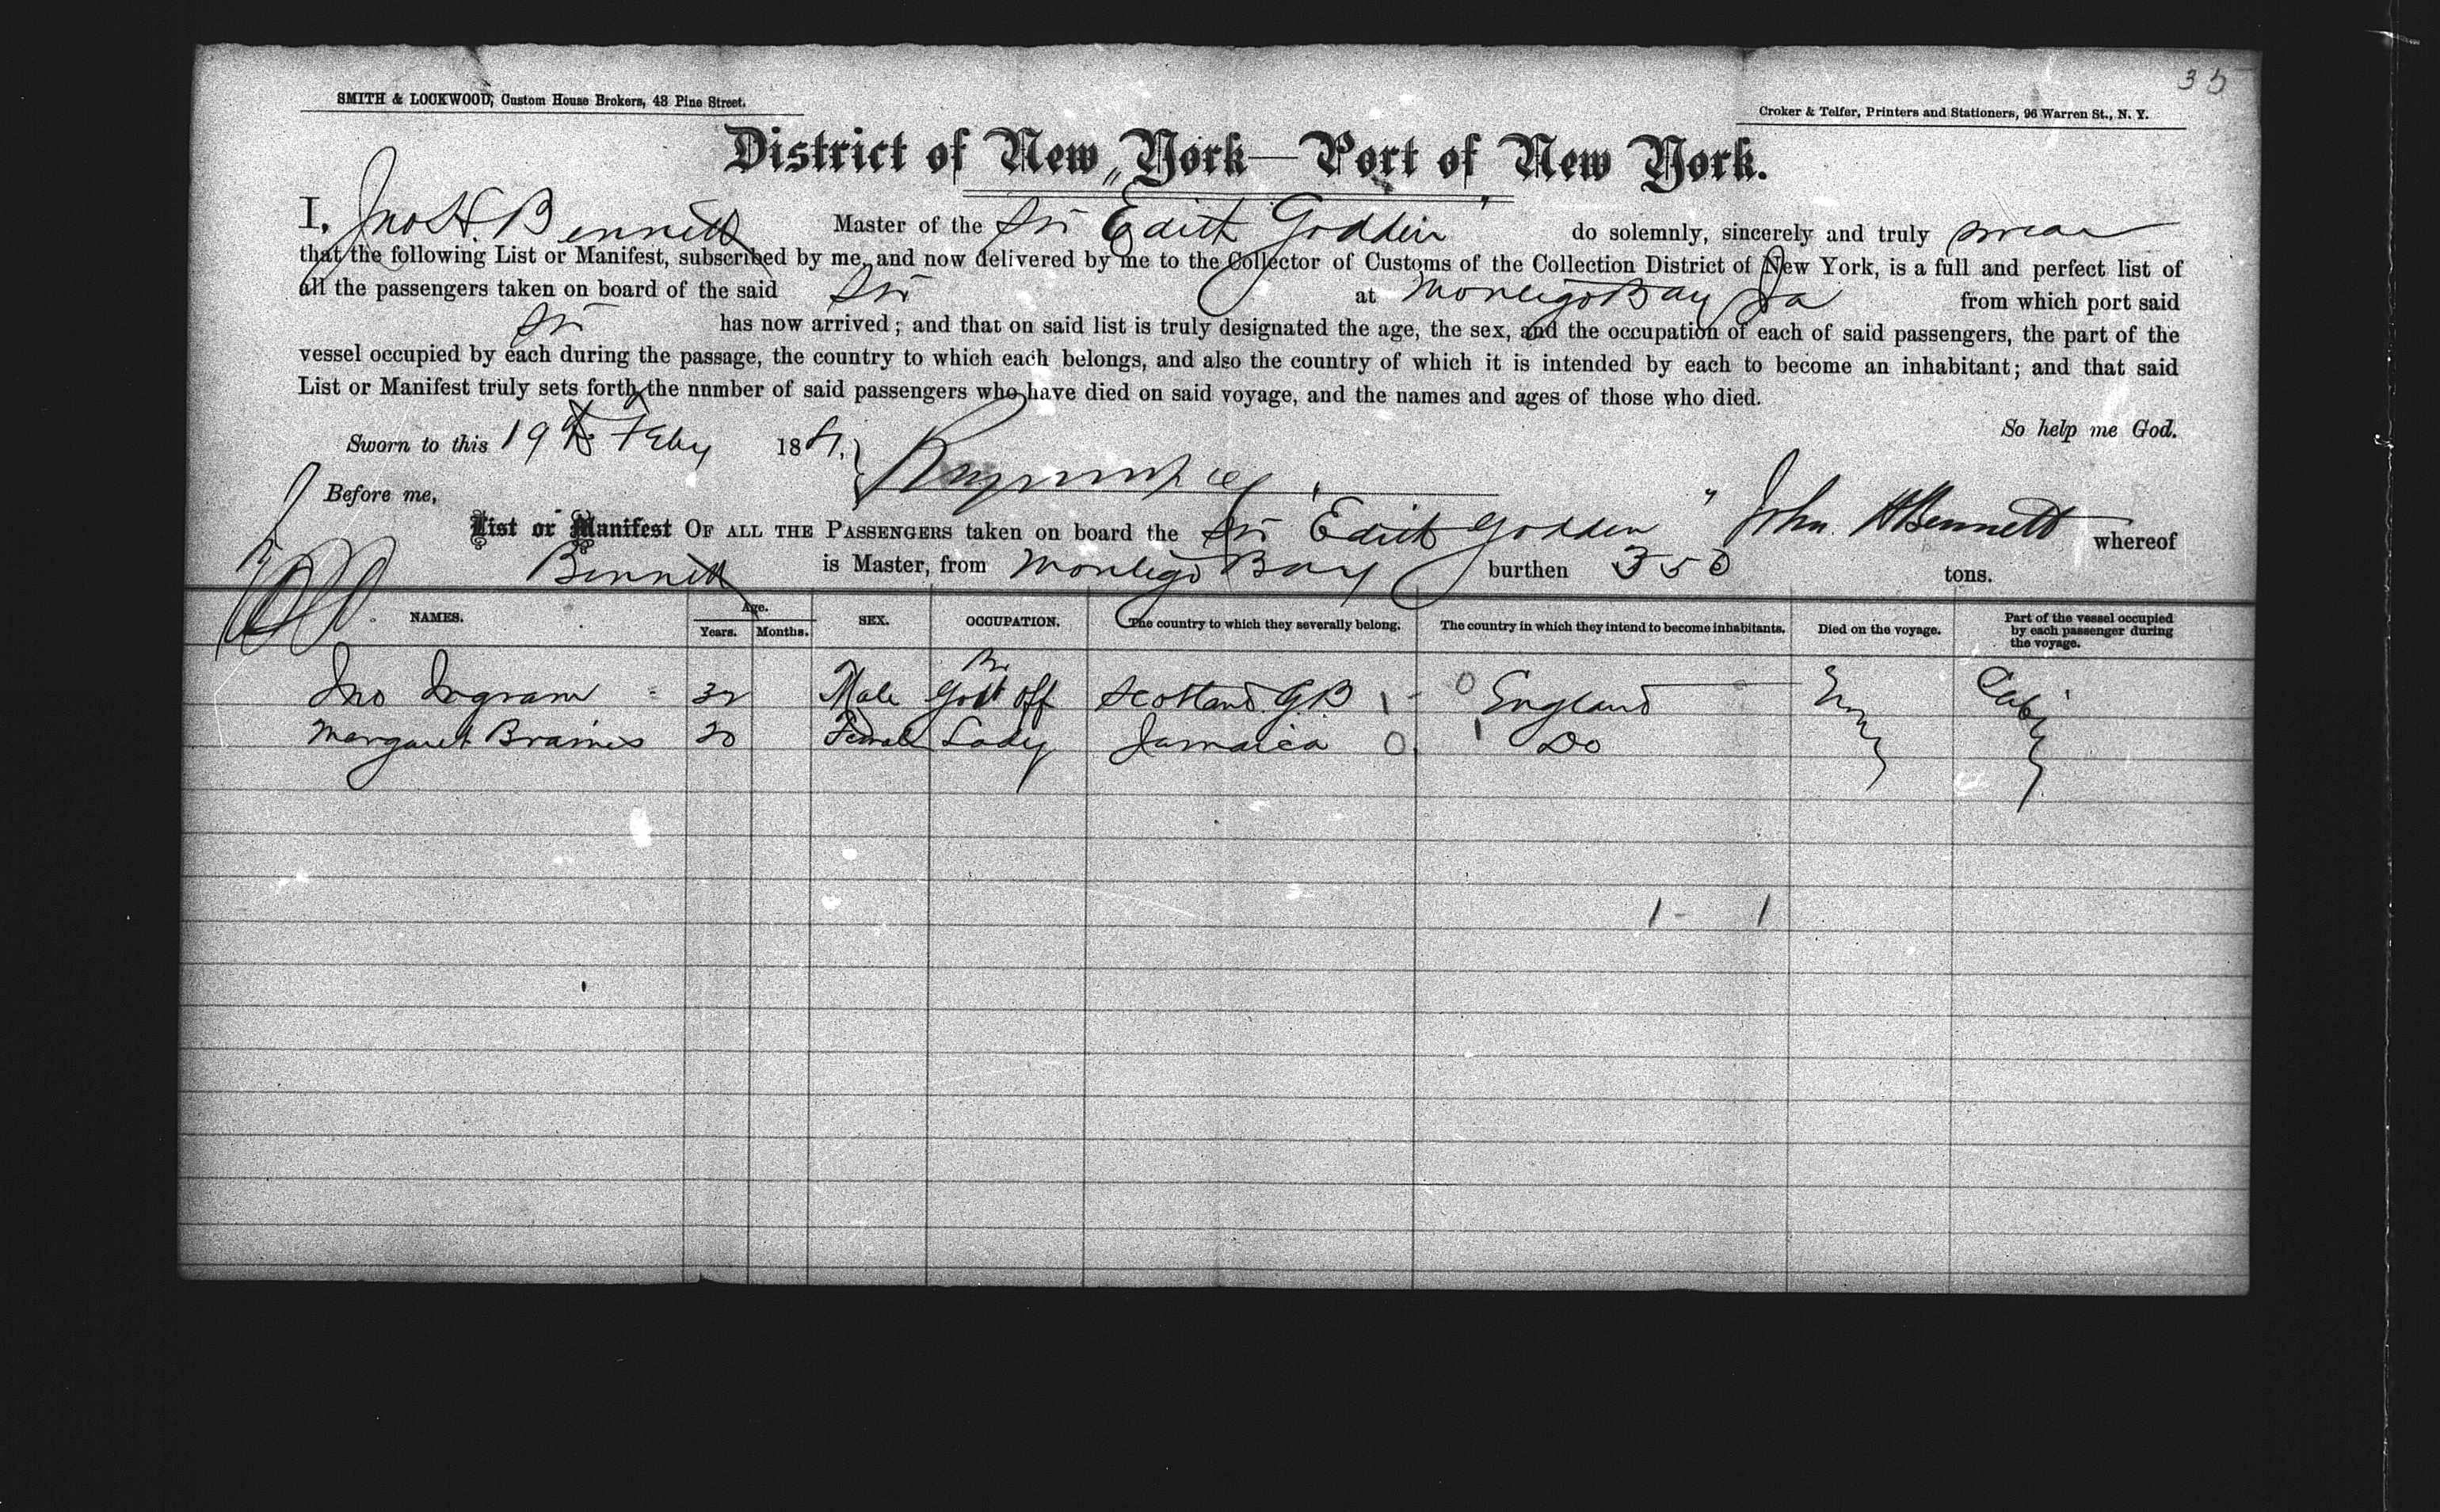 35
SMITH & LOCKWOOD, Custom House Brokers, 48 Pine Street.
Croker & Telfer, Printers and Stationers, 96 Warren St., N. Y.
District of New York—Port of New York.
I, Jno H. Bennett Master of the Str Edith Godden do solemnly, sincerely and truly swear
that the following List or Manifest, subscribed by me, and now delivered by me to the Collector of Customs of the Collection District of New York, is a full and perfect list of
all the passengers taken on board of the said Str at Montego Bay Ja from which port said
Str has now arrived; and that on said list is truly designated the age, the sex, and the occupation of each of said passengers, the part of the
vessel occupied by each during the passage, the country to which each belongs, and also the country of which it is intended by each to become an inhabitant; and that said
List or Manifest truly sets forth the nnmber of said passengers who have died on said voyage, and the names and ages of those who died.
So help me God.
Sworn to this 19th Feby 18
Before me,
John H Bennett
List or Manifest OF ALL THE PASSENGERS taken on board the Str Edith Godden whereof
Bennett is Master, from Montego Bay burthen 350 tons.
NAMES. Age. Years. Months. SEX. OCCUPATION. The country to which they severally belong. The country in which they intend to become inhabitants. Died on the voyage. Part of the vessel occupied by each passenger during the voyage.
Jno Ingram 32 Male Br Govt Off Scotland G.B 1 - 0 England
Margaret Braines 20 Female Lady Jamaica 0 1 Do
1 - 1